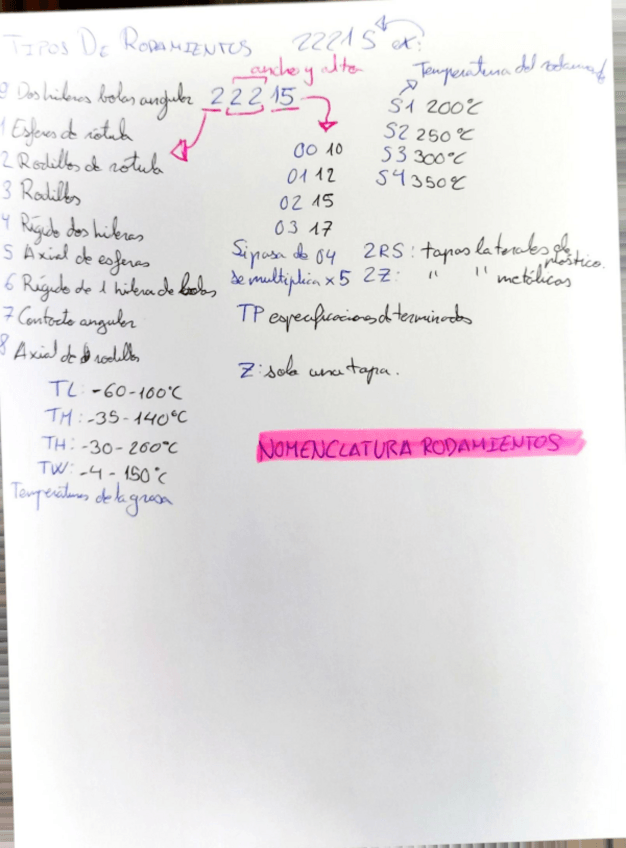 TIPOS DE RODAMIENTOS
22215 ex:
ancho y alto
Temperatura del rodamiento
0 Dos hileras bolas angular
22215
S1 200°C
1 Esferas de rotula
S2 250°C
2 Rodillos de rótula
00 10
S3 300°C
01 12
S4 350°C
3 Rodillos
02 15
4 Rígido dos hileras
03 17
5 Axial de esferas
Si pasa de 04
2RS: tapas laterales de plástico.
6 Rígido de 1 hilera de bolas
se multiplica x 5
2Z: " " metálicas
7 Contacto angular
TP especificaciones determinadas
8 Axial de rodillos
Z: sola una tapa.
TL: -60-100°C
TM: -35-140°C
TH: -30-200°C
TW: -4-150°C
Temperaturas de la grasa
NOMENCLATURA RODAMIENTOS